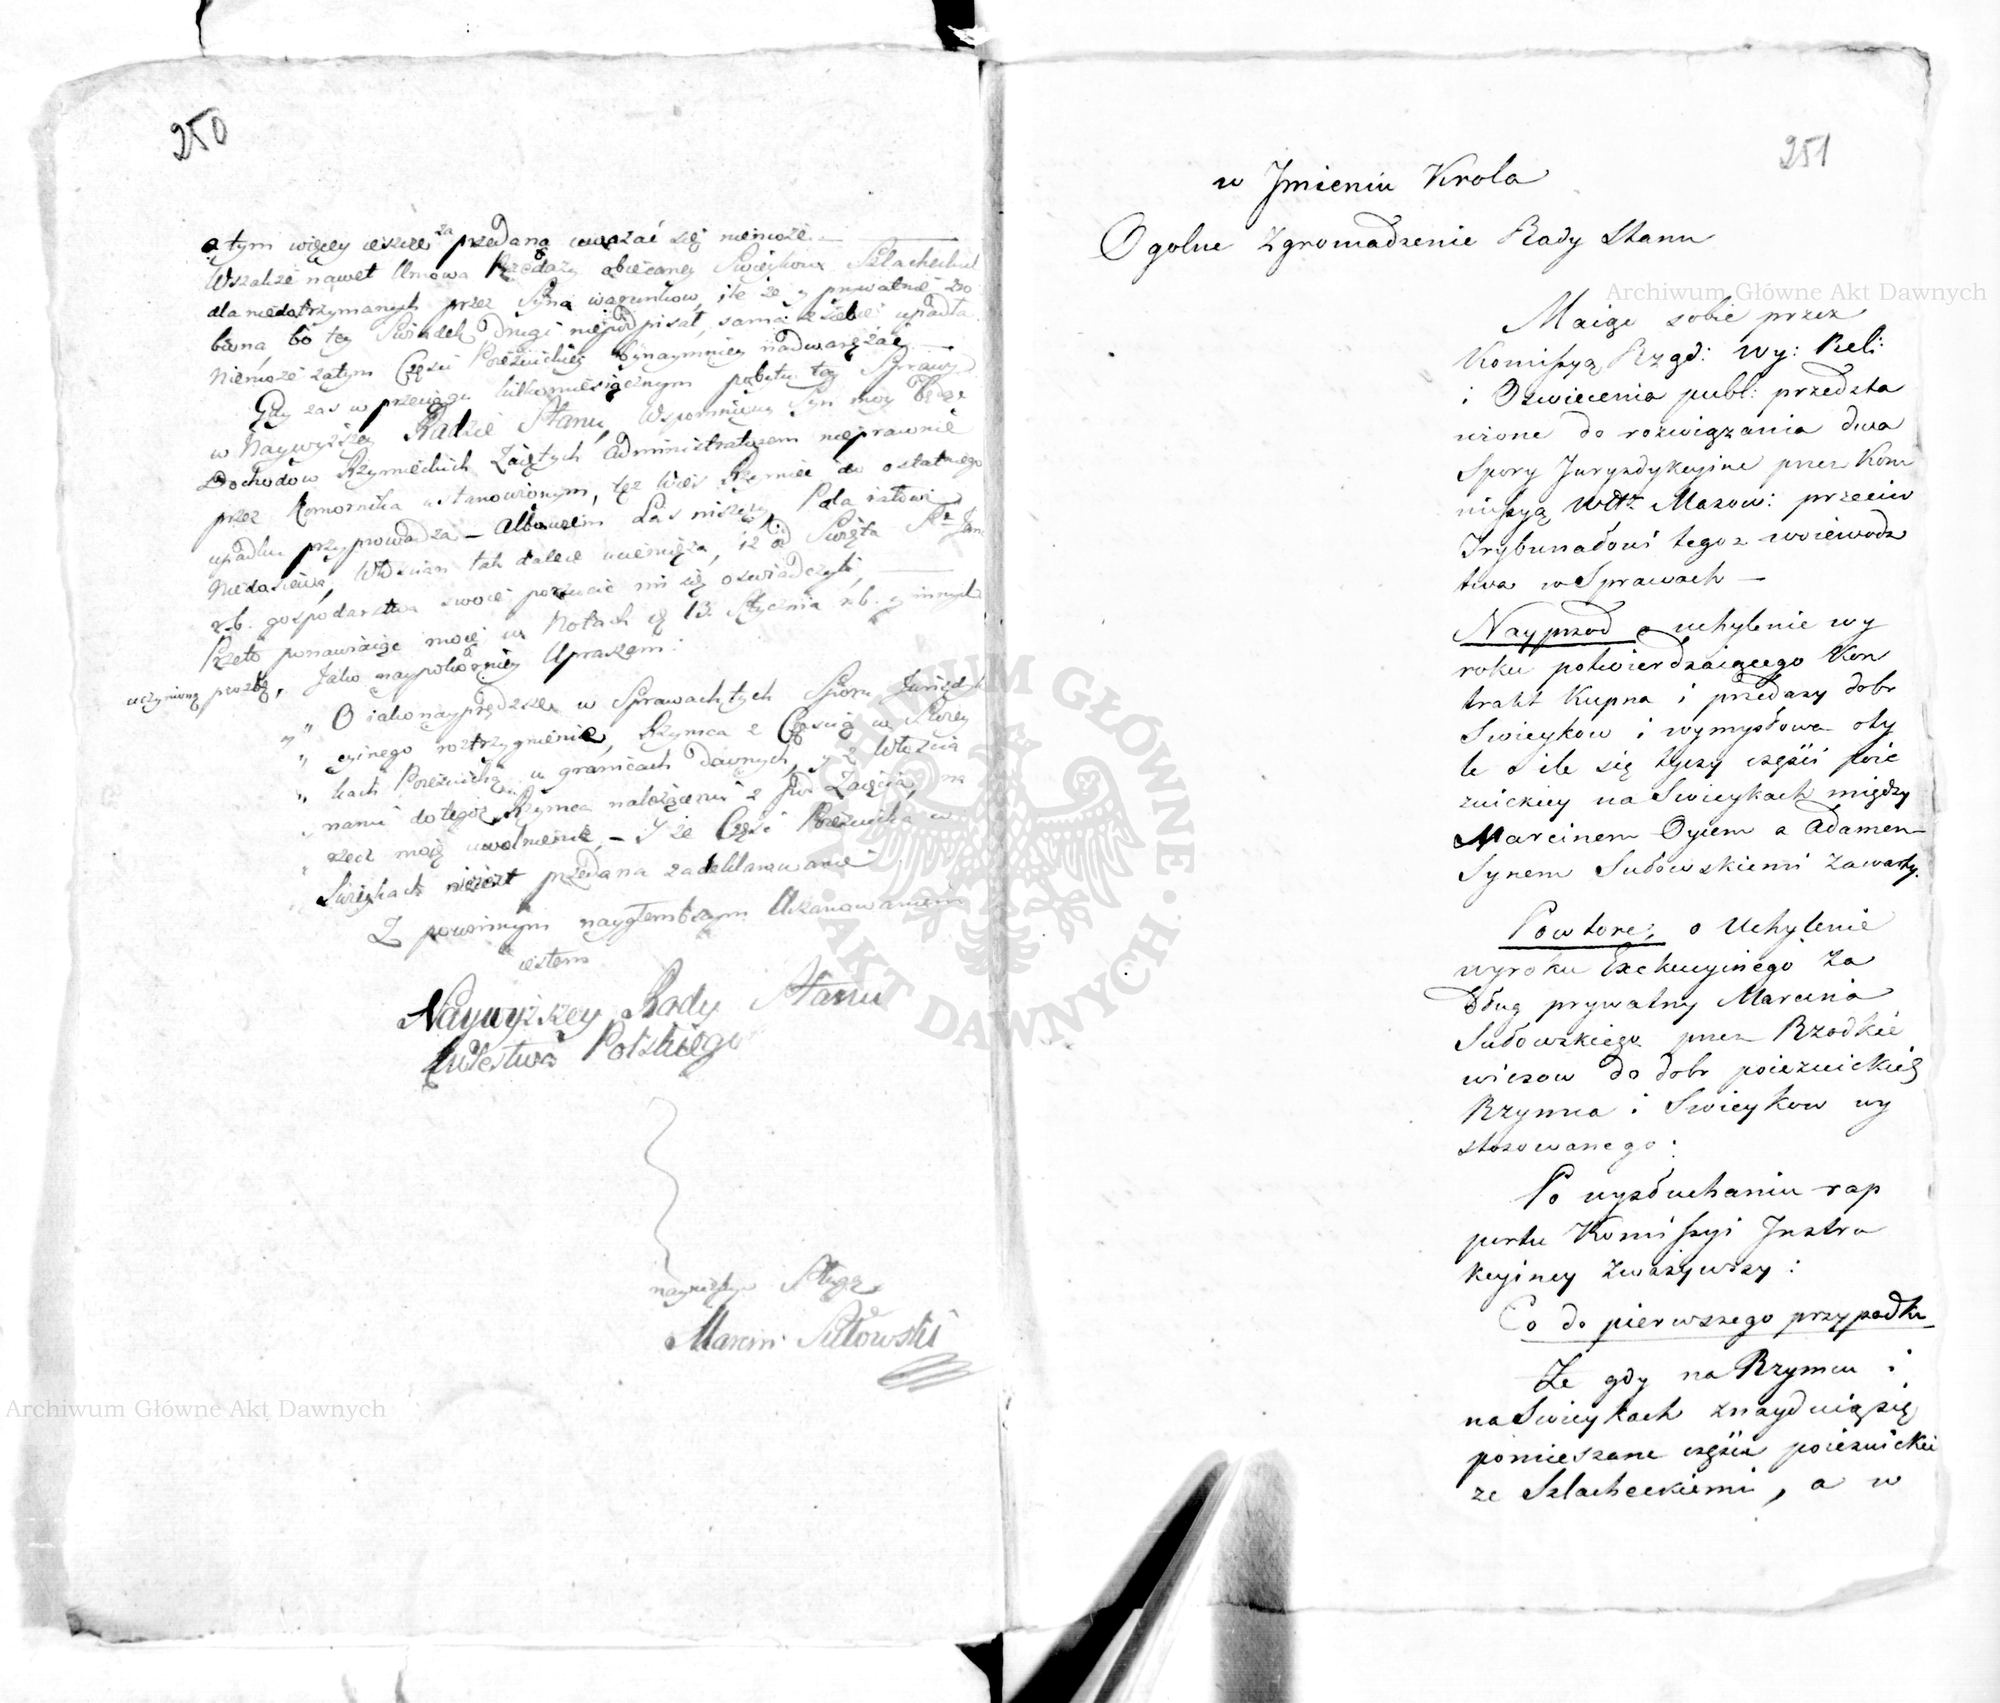 250
a tym więcey ieszcze za przedaną uważać się niemoże.
Wszakże nawet Umowa Przedaży obiecaney Swieykow Szlacheckich
dla niedotrzymanych przez Syna warunkow, ile że y prywatnie zro
biona, bo iey Swiadek drugi niepodpisał, sama z siebie upadła.
Niemoże zatym Części Poiezuickiey bynaymniey nadwerężać.
Gdy zas w przeciągu kilkomiesięcznym pobytu tey Sprawy
w Naywyższey Radzie Stanu, Wspomniony Syn moy będąc
Dochodow Rzymieckich Zaiętych Administratorem nieprawnie
przez Komornika ustanowionym, też Wieś Rzymiec do ostatniego
upadku przyprowadza – albowiem Las niszczy, Pola
Niezasiewa, Włościan tak dalece uciemięża, iż od Swięta St Jana
r. b. gospodarstwa swoie porzucić mi się oswiadczyli,
Przeto ponawiaiąc moię w Notach 13 Stycznia r. b. y innych
uczynioną prozbę, Jako naypokorniey Upraszam:
„ O iako nayprędsze w Sprawach tych Sporu Jurisdyk
„ cyinego roztrzygnienie, Rzymca z Częscią w Swiey
„ kach Poiezuicką w granicach dawnych, y z Włoscia
„ nami do tegoż Rzymca należącemi z pod Zaięcia, na
„ rzecz moię uwolnienie, – I że Część Poiezuicka w
„ Swieykach nieiest przedana zadeklarowanie
Z powinnym nayglembszym Uszanowaniem
iestem
Naywyższey Rady Stanu
Krolestwa Polskiego
nayniższym Sługą
Marcin Sułowski
251
w Jmieniu Krola
Ogolne Zgromadzenie Rady Stanu
Maiąc sobie przez
Komissyą Rząd: Wy: Reli:
i Oswiecenia publ: przedsta
wione do rozwiązania dwa
Spory Juryzdykcyine przez Kom
missyą Wdtz Mazow: przeciw
Trybunałowi tegoz woiewodz
twa w Sprawach –
Nayprzod o uchylenie wy
roku potwierdzaiącego Kon
trakt Kupna i przedazy dobr
Swieykow i wymysłowa oty
le o ile się tyczy części poie
zuickiey na Swieykach między
Marcinem Oycem a Adamem
Synem Sułowskiemi zawarty.
Powtore; o Uchylenie
wyroku Exekucyinego za
Dług prywatny Marcina
Sułowskiego przez Rzodkie
wiczow do dobr poiezuickich
Rzymca i Swieykow wy
stosowanego:
Po wysłuchaniu rap
portu Komissyi Instru
kcyiney zwazywszy:
Co do pierwszego przypadku
Ze gdy na Rzymcu i
na Swieykach znayduią się
pomieszane części poiezuickie
ze Szlacheckiemi, a w
Archiwum Główne Akt Dawnych
Archiwum Główne Akt Dawnych
ARCHIWUM GŁÓWNE · AKT DAWNYCH ·